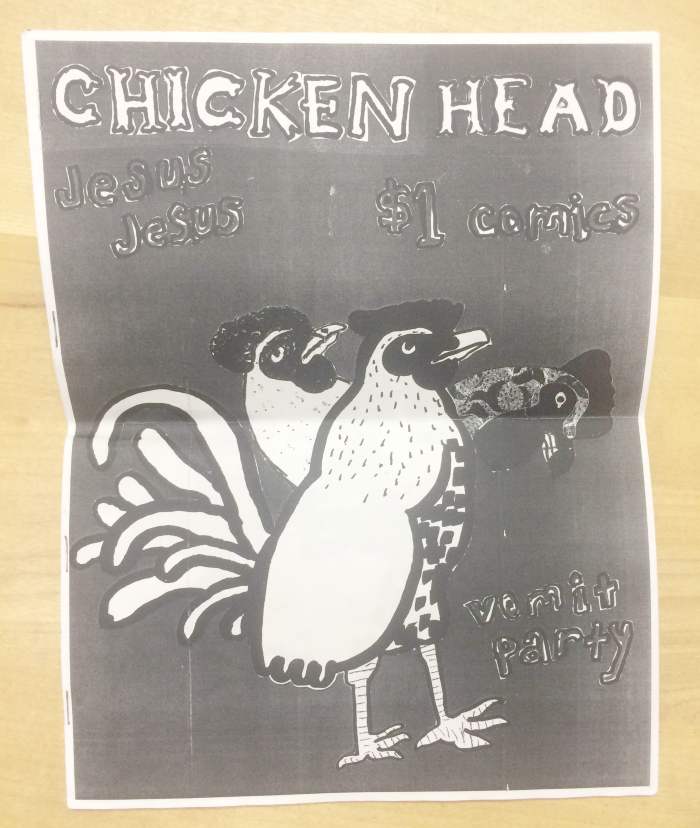 CHICKEN HEAD
Jesus
Jesus
$1 comics
vomit
party